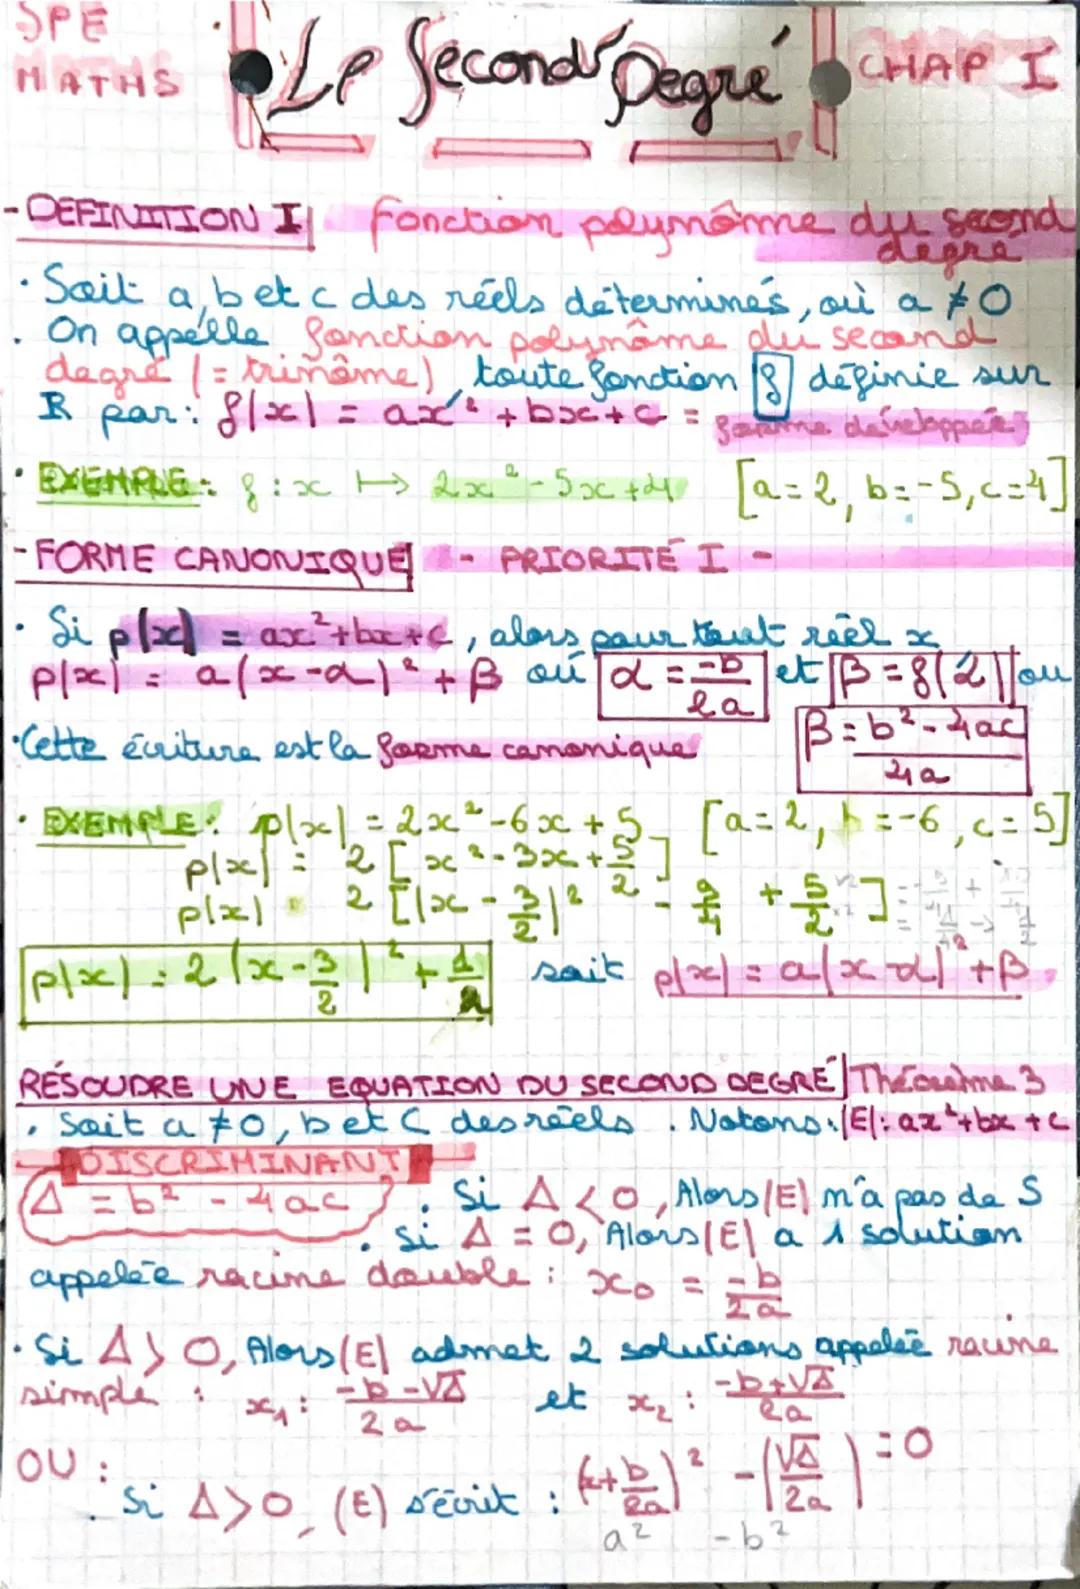 SPE MATHS
Le Second Degré
CHAP I
- DEFINITION I| Fonction polynôme du second degré
· Soit a, b et c des réels déterminés, où a ≠ 0
· On appelle fonction polynôme du second
degré (= trinôme), toute fonction f définie sur
ℝ par: f(x) = ax² + bx + c = forme développée
· EXEMPLE : f : x ↦ 2x² - 5x + 4 [a = 2, b = -5, c = 4]
- FORME CANONIQUE| - PRIORITÉ I -
· Si p(x) = ax² + bx + c, alors pour tout réel x
p(x) = a(x - α)² + β où α = -b/2a et β = f(α) ou
β = b² - 4ac/4a
· Cette écriture est la forme canonique
· EXEMPLE : p(x) = 2x² - 6x + 5 [a = 2, b = -6, c = 5]
p(x) = 2 [x² - 3x + 5/2]
p(x) = 2 [(x - 3/2)² - 9/4 + 5/2]
p(x) = 2 (x - 3/2)² + 1/2 soit p(x) = a(x - α)² + β
RÉSOUDRE UNE EQUATION DU SECOND DEGRÉ| Théorème 3
· Soit a ≠ 0, b et c des réels. Notons : (E): ax² + bx + c
DISCRIMINANT
Δ = b² - 4ac
· Si Δ < 0, Alors (E) n'a pas de S
· Si Δ = 0, Alors (E) a 1 solution
appelée racine double : x₀ = -b/2a
· Si Δ > 0, Alors (E) admet 2 solutions appelée racine
simple : x₁ : -b - √Δ/2a et x₂ : -b + √Δ/2a
OU :
· Si Δ > 0, (E) s'écrit : (x + b/2a)² - (√Δ/2a) = 0
a² - b²